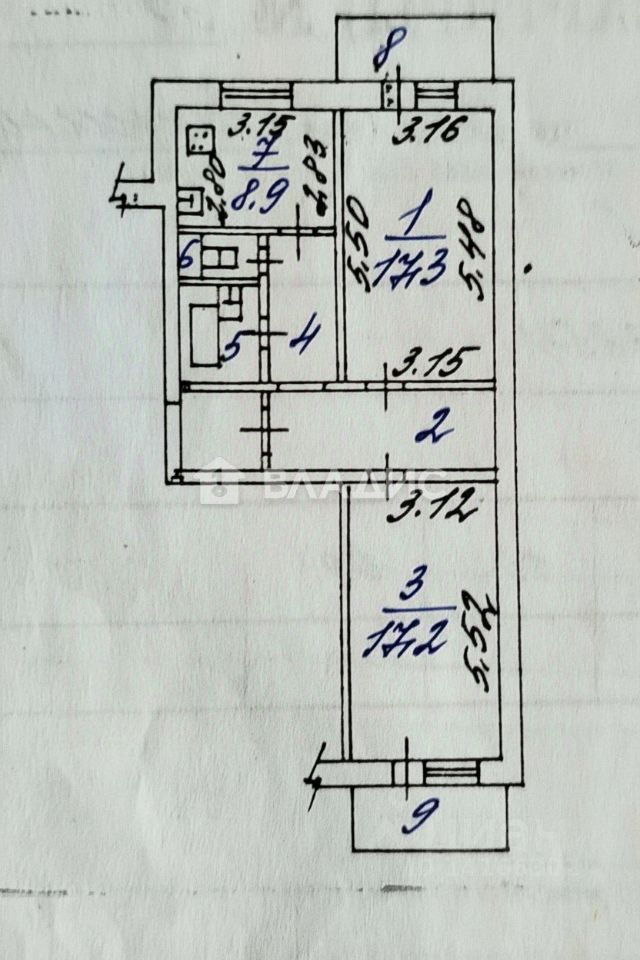 8
3.15
3.16
7
8.9
2.80
2.83
1
17,3
5.50
5.48
6
5
4
3.15
2
ВЛАДИС
3.12
3
17,2
5.52
9